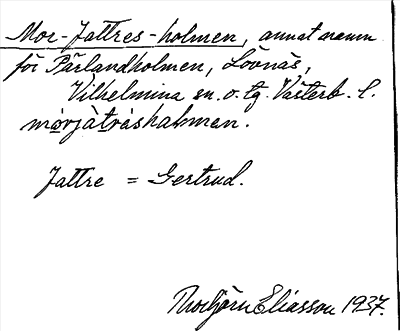 Mor-Jattres-holmen, annat namn
för Pärlandholmen, Lövnäs,
Vilhelmina sn. o. tg. Västerb. l.
morjàtrashalmen.
Jattre = Gertrud.
Thorbjörn Eliasson 1937.